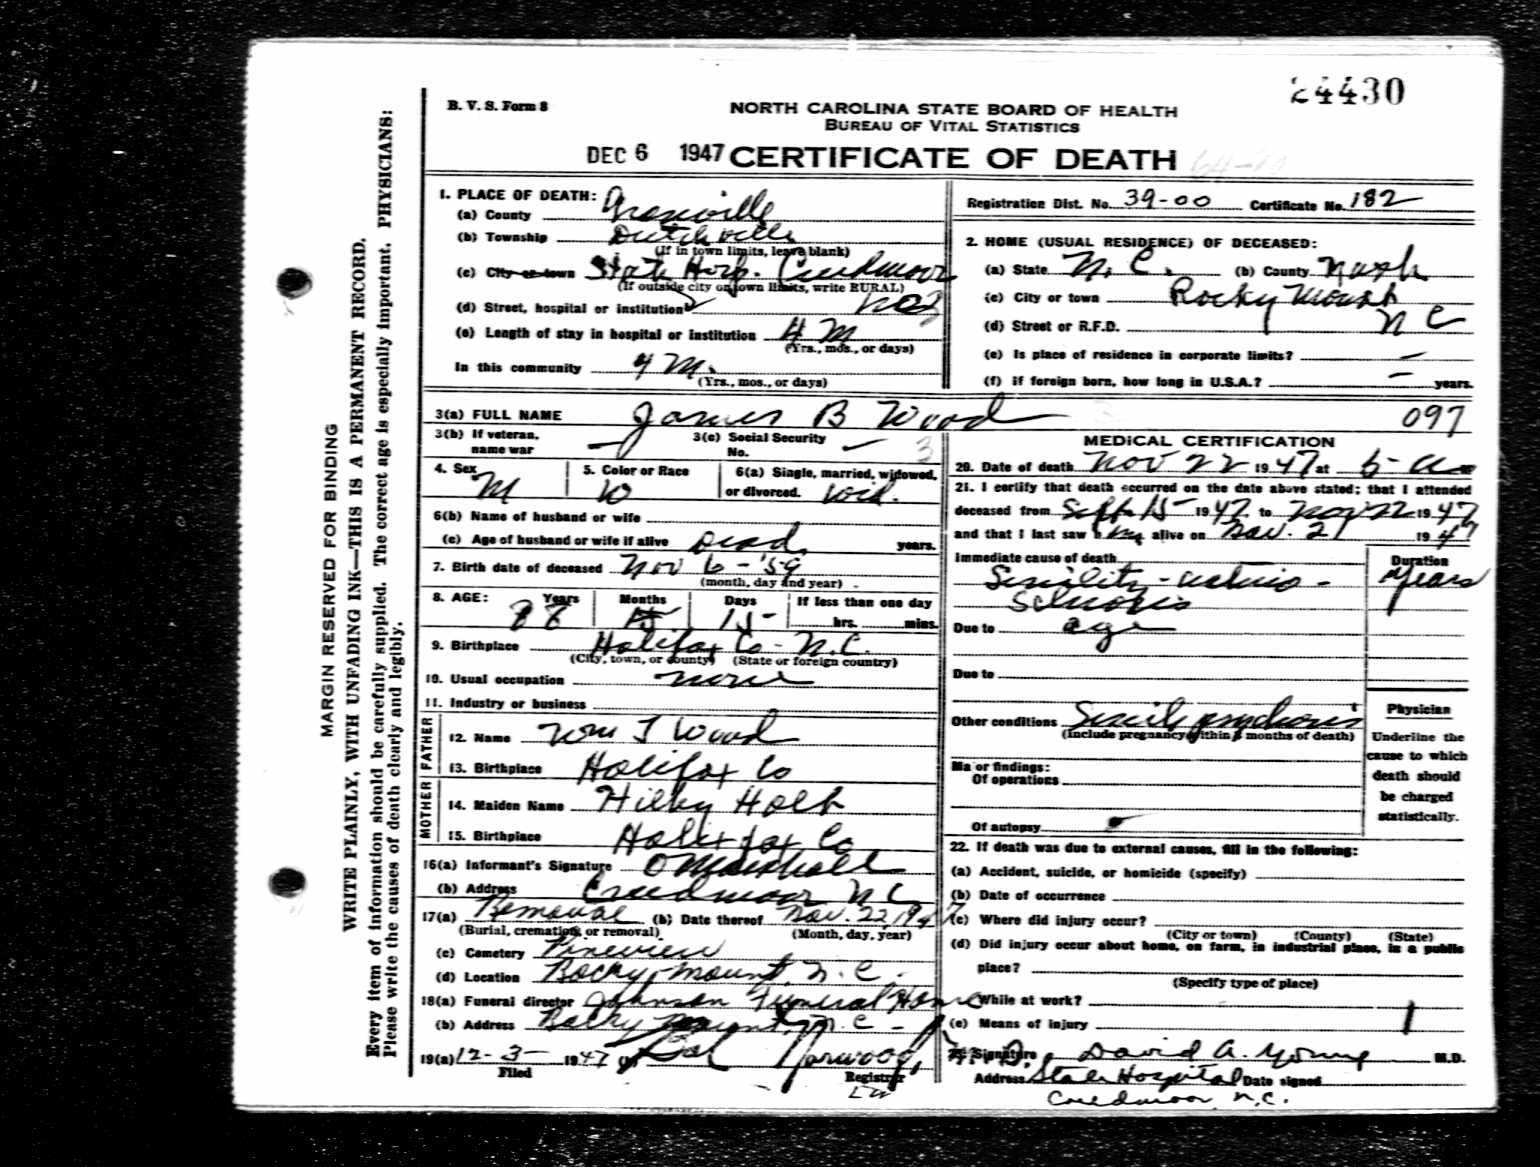 24430
B. V. S. Form 8
NORTH CAROLINA STATE BOARD OF HEALTH
BUREAU OF VITAL STATISTICS
DEC 6 1947 CERTIFICATE OF DEATH
MARGIN RESERVED FOR BINDING
WRITE PLAINLY, WITH UNFADING INK—THIS IS A PERMANENT RECORD.
Every item of information should be carefully supplied. The correct age is especially important. PHYSICIANS:
Please write the causes of death clearly and legibly.
1. PLACE OF DEATH:
(a) County Granville
(b) Township Dutchville
(If in town limits, leave blank)
(c) City or town State Hosp. Creedmoor
(If outside city or town limits, write RURAL)
(d) Street, hospital or institution
(e) Length of stay in hospital or institution 4 M
(Yrs., mos., or days)
In this community 4 M.
(Yrs., mos., or days)
Registration Dist. No. 39-00 Certificate No. 182
2. HOME (USUAL RESIDENCE) OF DECEASED:
(a) State N. C. (b) County Nash
(c) City or town Rocky Mount
(d) Street or R.F.D. N C
(e) Is place of residence in corporate limits? —
(f) If foreign born, how long in U.S.A.? — years.
3(a) FULL NAME James B Wood 097
3(b) If veteran, name war — 3(c) Social Security No. — 3
4. Sex M 5. Color or Race W 6(a) Single, married, widowed, or divorced. Wid.
6(b) Name of husband or wife
(c) Age of husband or wife if alive Dead years.
7. Birth date of deceased Nov 6 - '59
(month, day and year)
8. AGE: Years 88 Months Days 15 If less than one day
hrs. mins.
9. Birthplace Halifax Co - N.C.
(City, town, or county) (State or foreign country)
10. Usual occupation none
11. Industry or business
FATHER
12. Name Wm J Wood
13. Birthplace Halifax Co
MOTHER
14. Maiden Name Hilky Holt
15. Birthplace Halifax Co
16(a) Informant's Signature O Marshall
(b) Address Creedmoor N C
17(a) Removal (b) Date thereof Nov. 22, 1947
(Burial, cremation, or removal) (Month, day, year)
(c) Cemetery Pineview
(d) Location Rocky Mount, N. C.
18(a) Funeral director Johnson Funeral Home
(b) Address Rocky Mount, N. C -
19(a) 12-3- 1947 (b) Norwood,
Filed Registrar
MEDICAL CERTIFICATION
20. Date of death Nov 22 1947 at 5- a m
21. I certify that death occurred on the date above stated; that I attended
deceased from Sept 15- 1947 to Nov 22 1947
and that I last saw him alive on Nov. 21 1947
Immediate cause of death Duration
Senility - arterio - Years
Sclerosis
Due to age
Due to
Other conditions Senile psychosis
(Include pregnancy within 3 months of death)
Major findings:
Of operations
Of autopsy
Physician
Underline the
cause to which
death should
be charged
statistically.
22. If death was due to external causes, fill in the following:
(a) Accident, suicide, or homicide (specify)
(b) Date of occurrence
(c) Where did injury occur?
(City or town) (County) (State)
(d) Did injury occur about home, on farm, in industrial place, in a public
place?
(Specify type of place)
While at work?
(e) Means of injury
23. Signature David A. Young M.D.
Address State Hospital Date signed
Creedmoor, N.C.